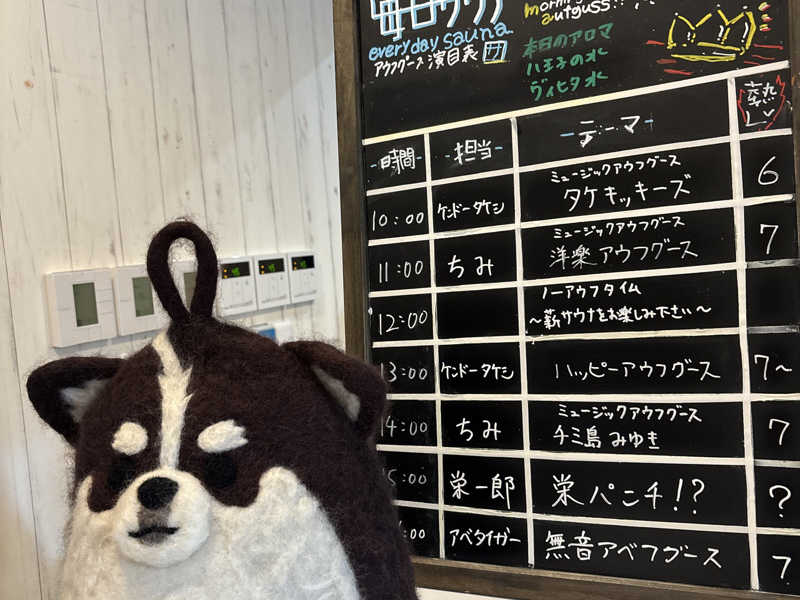 毎日サウナ
everyday sauna
アウフグース演目表
morning
autguss!!
本日のアロマ
八王子の水
ヴィヒタ水
時間 担当 テーマ 熱レベ
10:00 ケンドータケシ ミュージックアウフグース 6
タケキッキーズ
11:00 ちみ ミュージックアウフグース 7
洋楽アウフグース
12:00 ノーアウフタイム
～薪サウナをお楽しみ下さい～
13:00 ケンドータケシ ハッピーアウフグース 7～
14:00 ちみ ミュージックアウフグース 7
チミ島みゆき
15:00 栄一郎 栄パニチ!? ?
:00 アベタイガー 無音アベフグース 7